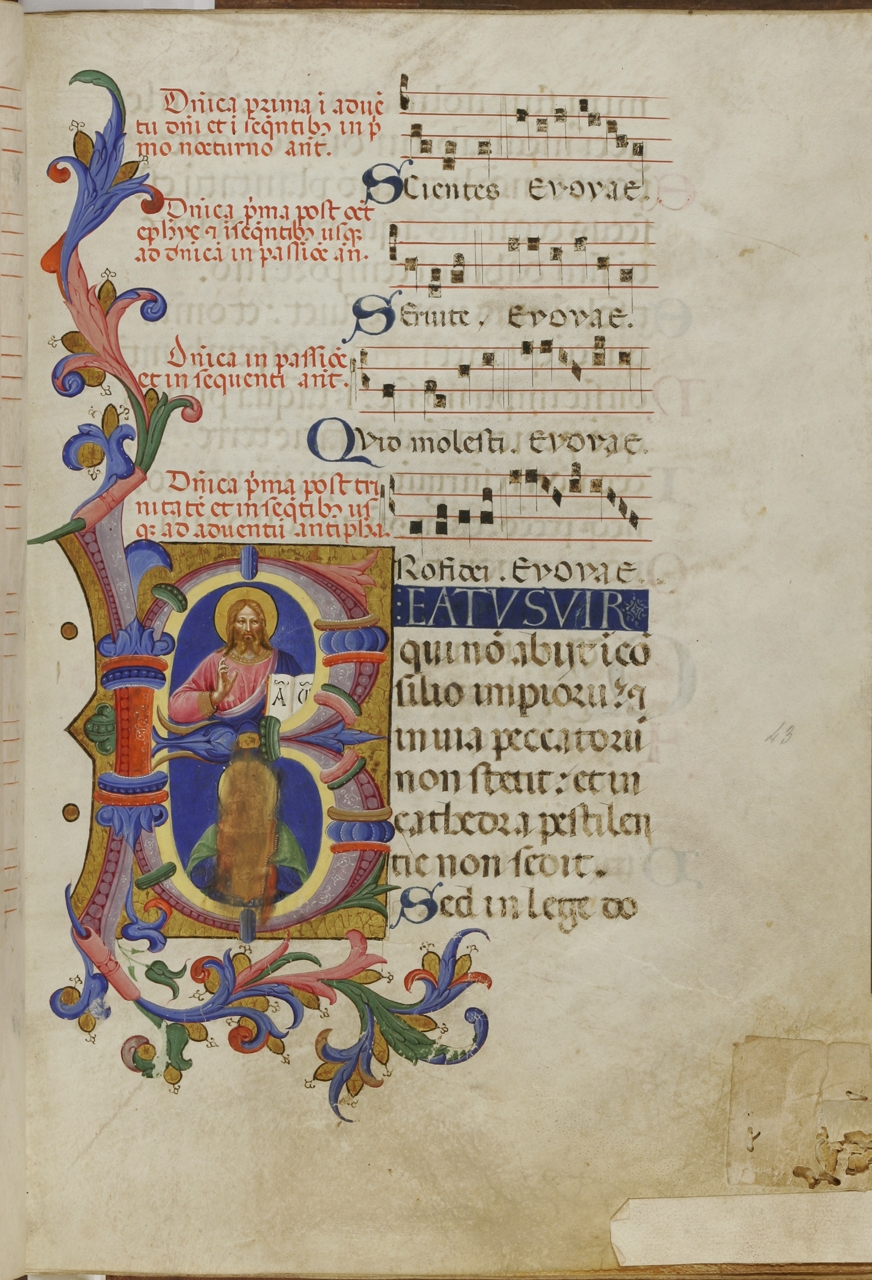 Dn̄ica prima ī aduē
tu dn̄i et ī seqn̄tibꝫ in p̄
mo nocturno ant̄.
SCientes Evovae.
Dn̄ica p̄ma post oct̄
eph̄ye ⁊ ī seqn̄tibꝫ usqꝫ
ad dn̄icā in passiōe an̄.
SEruite. Evovae.
Dn̄ica in passiōe
et in sequenti ant̄.
QVid molesti. Evovae.
Dn̄ica p̄ma post tri
nitatē et in seqn̄tibꝫ us
qꝫ ad aduentū antipha.
Rofidei. Evovae.
BEATVS VIR
qui nō abijt ī cō
silio impiorum ⁊
in uia peccatorū
non stetit: et in
cathedra pestilen
tie non sedit.
Sed in lege do
A
43